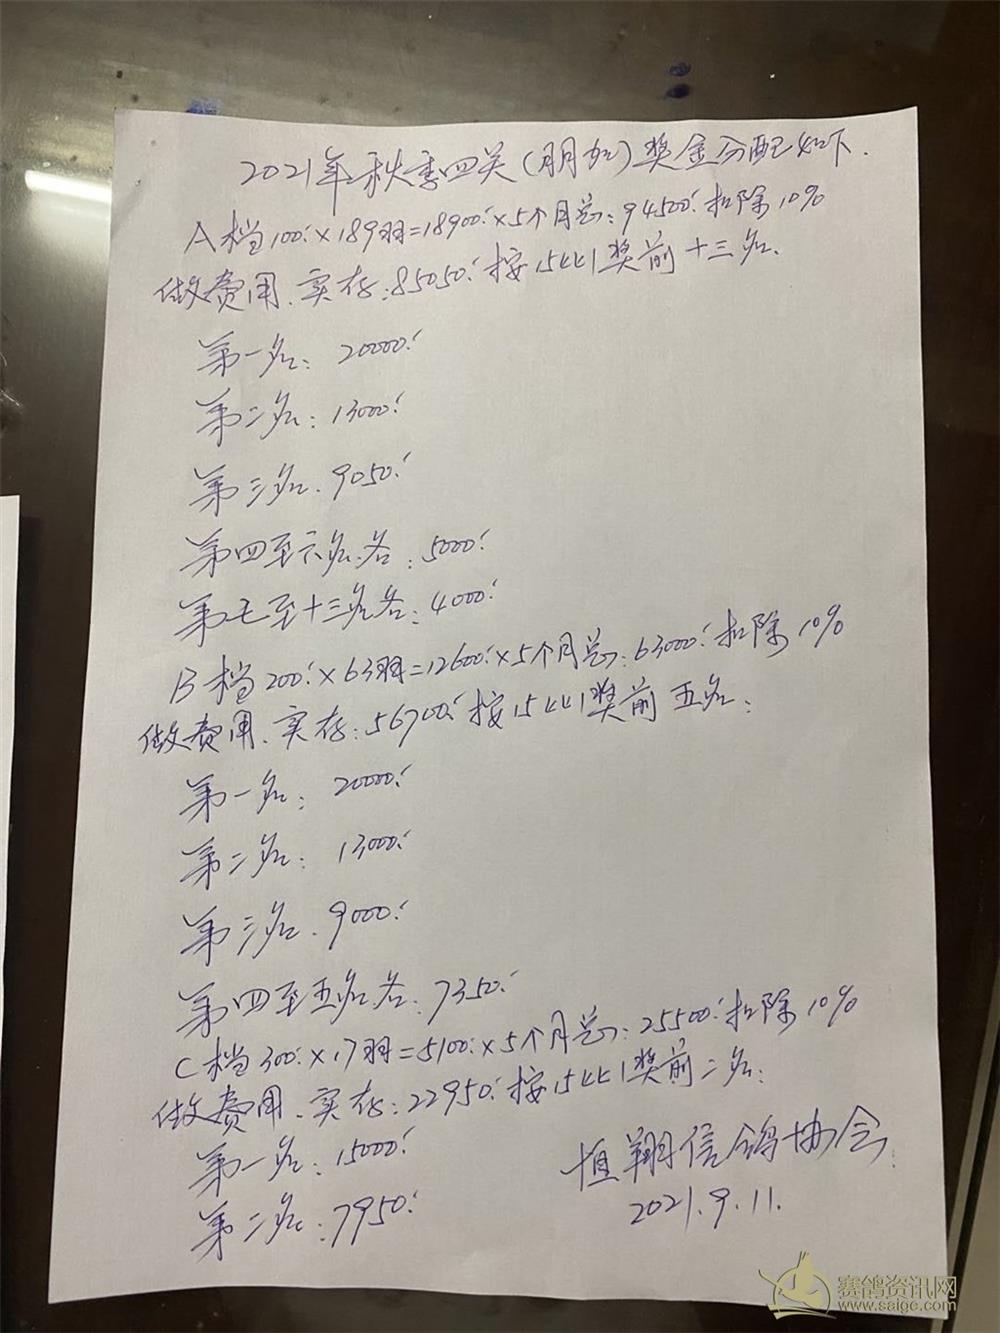 2021年秋季四关(朋加)奖金分配如下.
A档100.×189羽=18900.×5个月总:94500.扣除10%
做费用.实存:85050.按15比1奖前十三名.
第一名:20000.
第二名:13000.
第三名.9050.
第四至六名.各:5000.
第七至十三名各:4000.
B档200.×63羽=12600.×5个月总:63000.扣除10%
做费用.实存:56700.按15比1奖前五名:
第一名:20000.
第二名:13000.
第三名.9000.
第四至五名各:7350.
C档300.×17羽=5100.×5个月总:25500.扣除10%
做费用.实存:22950.按15比1奖前二名:
第一名:15000.
第二名:7950.
恒翔信鸽协会
2021.9.11.
赛鸽资讯网
www.saige.com